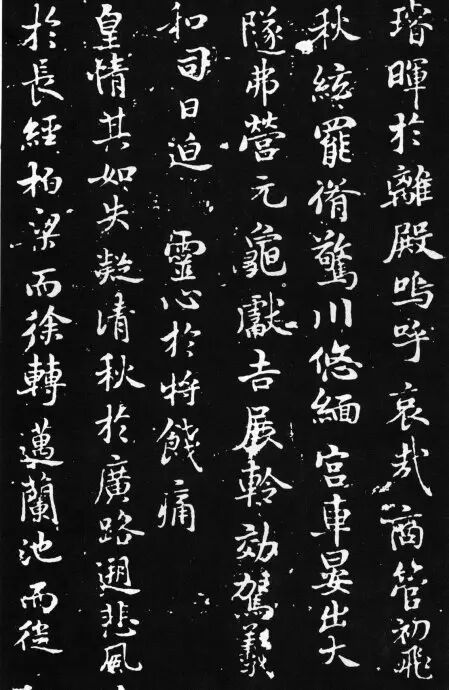 璿暉於離殿嗚呼哀哉商管初飛
秋絃罷脩驚川悠緬宮車晏出大
隧弗營元龜獻吉展軨効駕羲
和司日迫靈心於將餞痛
皇情其如失凝清秋於廣路遡悲風
於長經柏梁而徐轉邁蘭池而從